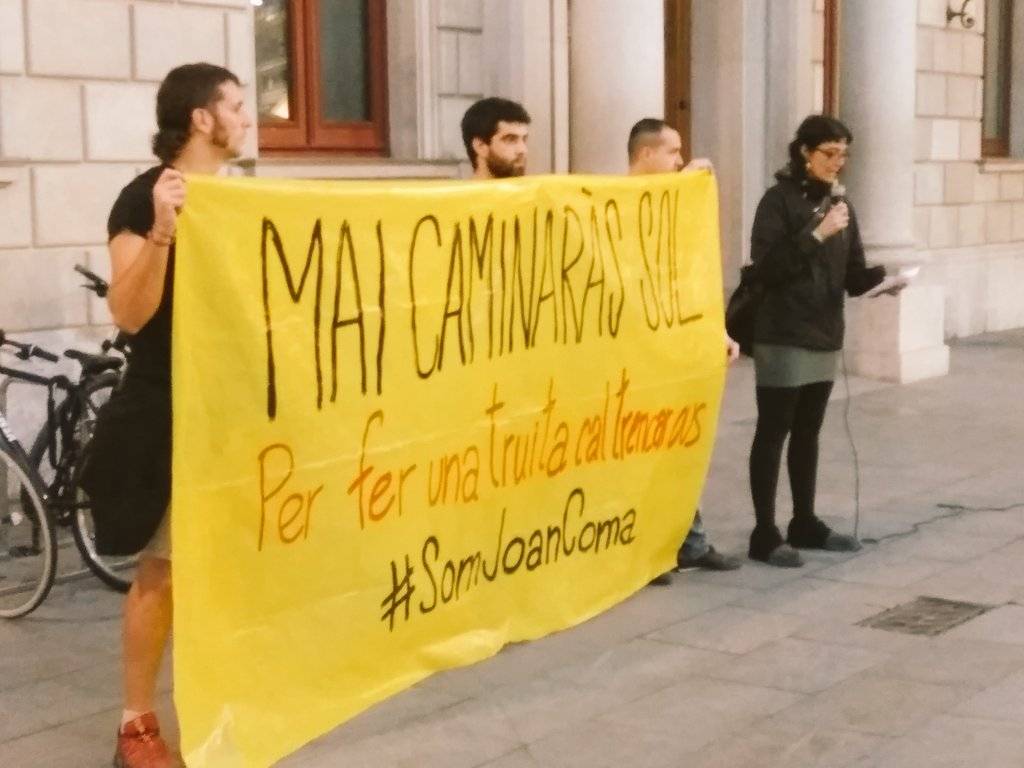 MAI CAMINARÀS SOL
Per fer una truita cal trencar ous
#SomJoanComa